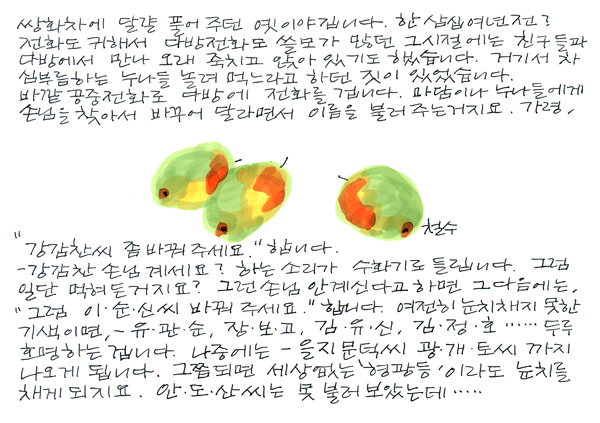 쌍화차에 달걀 풀어 주던 옛이야깁니다. 한 삼십여년전?
전화도 귀해서 다방전화도 쓸모가 많던 그시절에는 친구들과
다방에서 만나 오래 죽치고 앉아 있기도 했습니다. 거기서 차
심부름하는 누나들 놀려 먹느라고 하던 짓이 있었습니다.
바깥 공중전화로 다방에 전화를 겁니다. 마담이나 누나들에게
손님을 찾아서 바꾸어 달라면서 이름을 불러 주는거지요. 가령,
철수
"강감찬씨 좀 바꿔 주세요." 합니다.
-강감찬 손님 계세요? 하는 소리가 수화기로 들립니다. 그럼
일단 먹혀든거지요? 그런손님 안계신다고 하면 그다음에는,
"그럼 이·순·신씨 바꿔 주세요." 합니다. 여전히 눈치채지 못한
기색이면, -유·관·순, 장·보·고, 김·유·신, 김·정·호 …… 두루
호명하는 겁니다. 나중에는 -을지문덕씨 광·개·토씨 까지
나오게 됩니다. 그쯤되면 세상없는 '형광등' 이라도 눈치를
채게 되지요. 안·도·산씨는 못 불러보았는데 ……